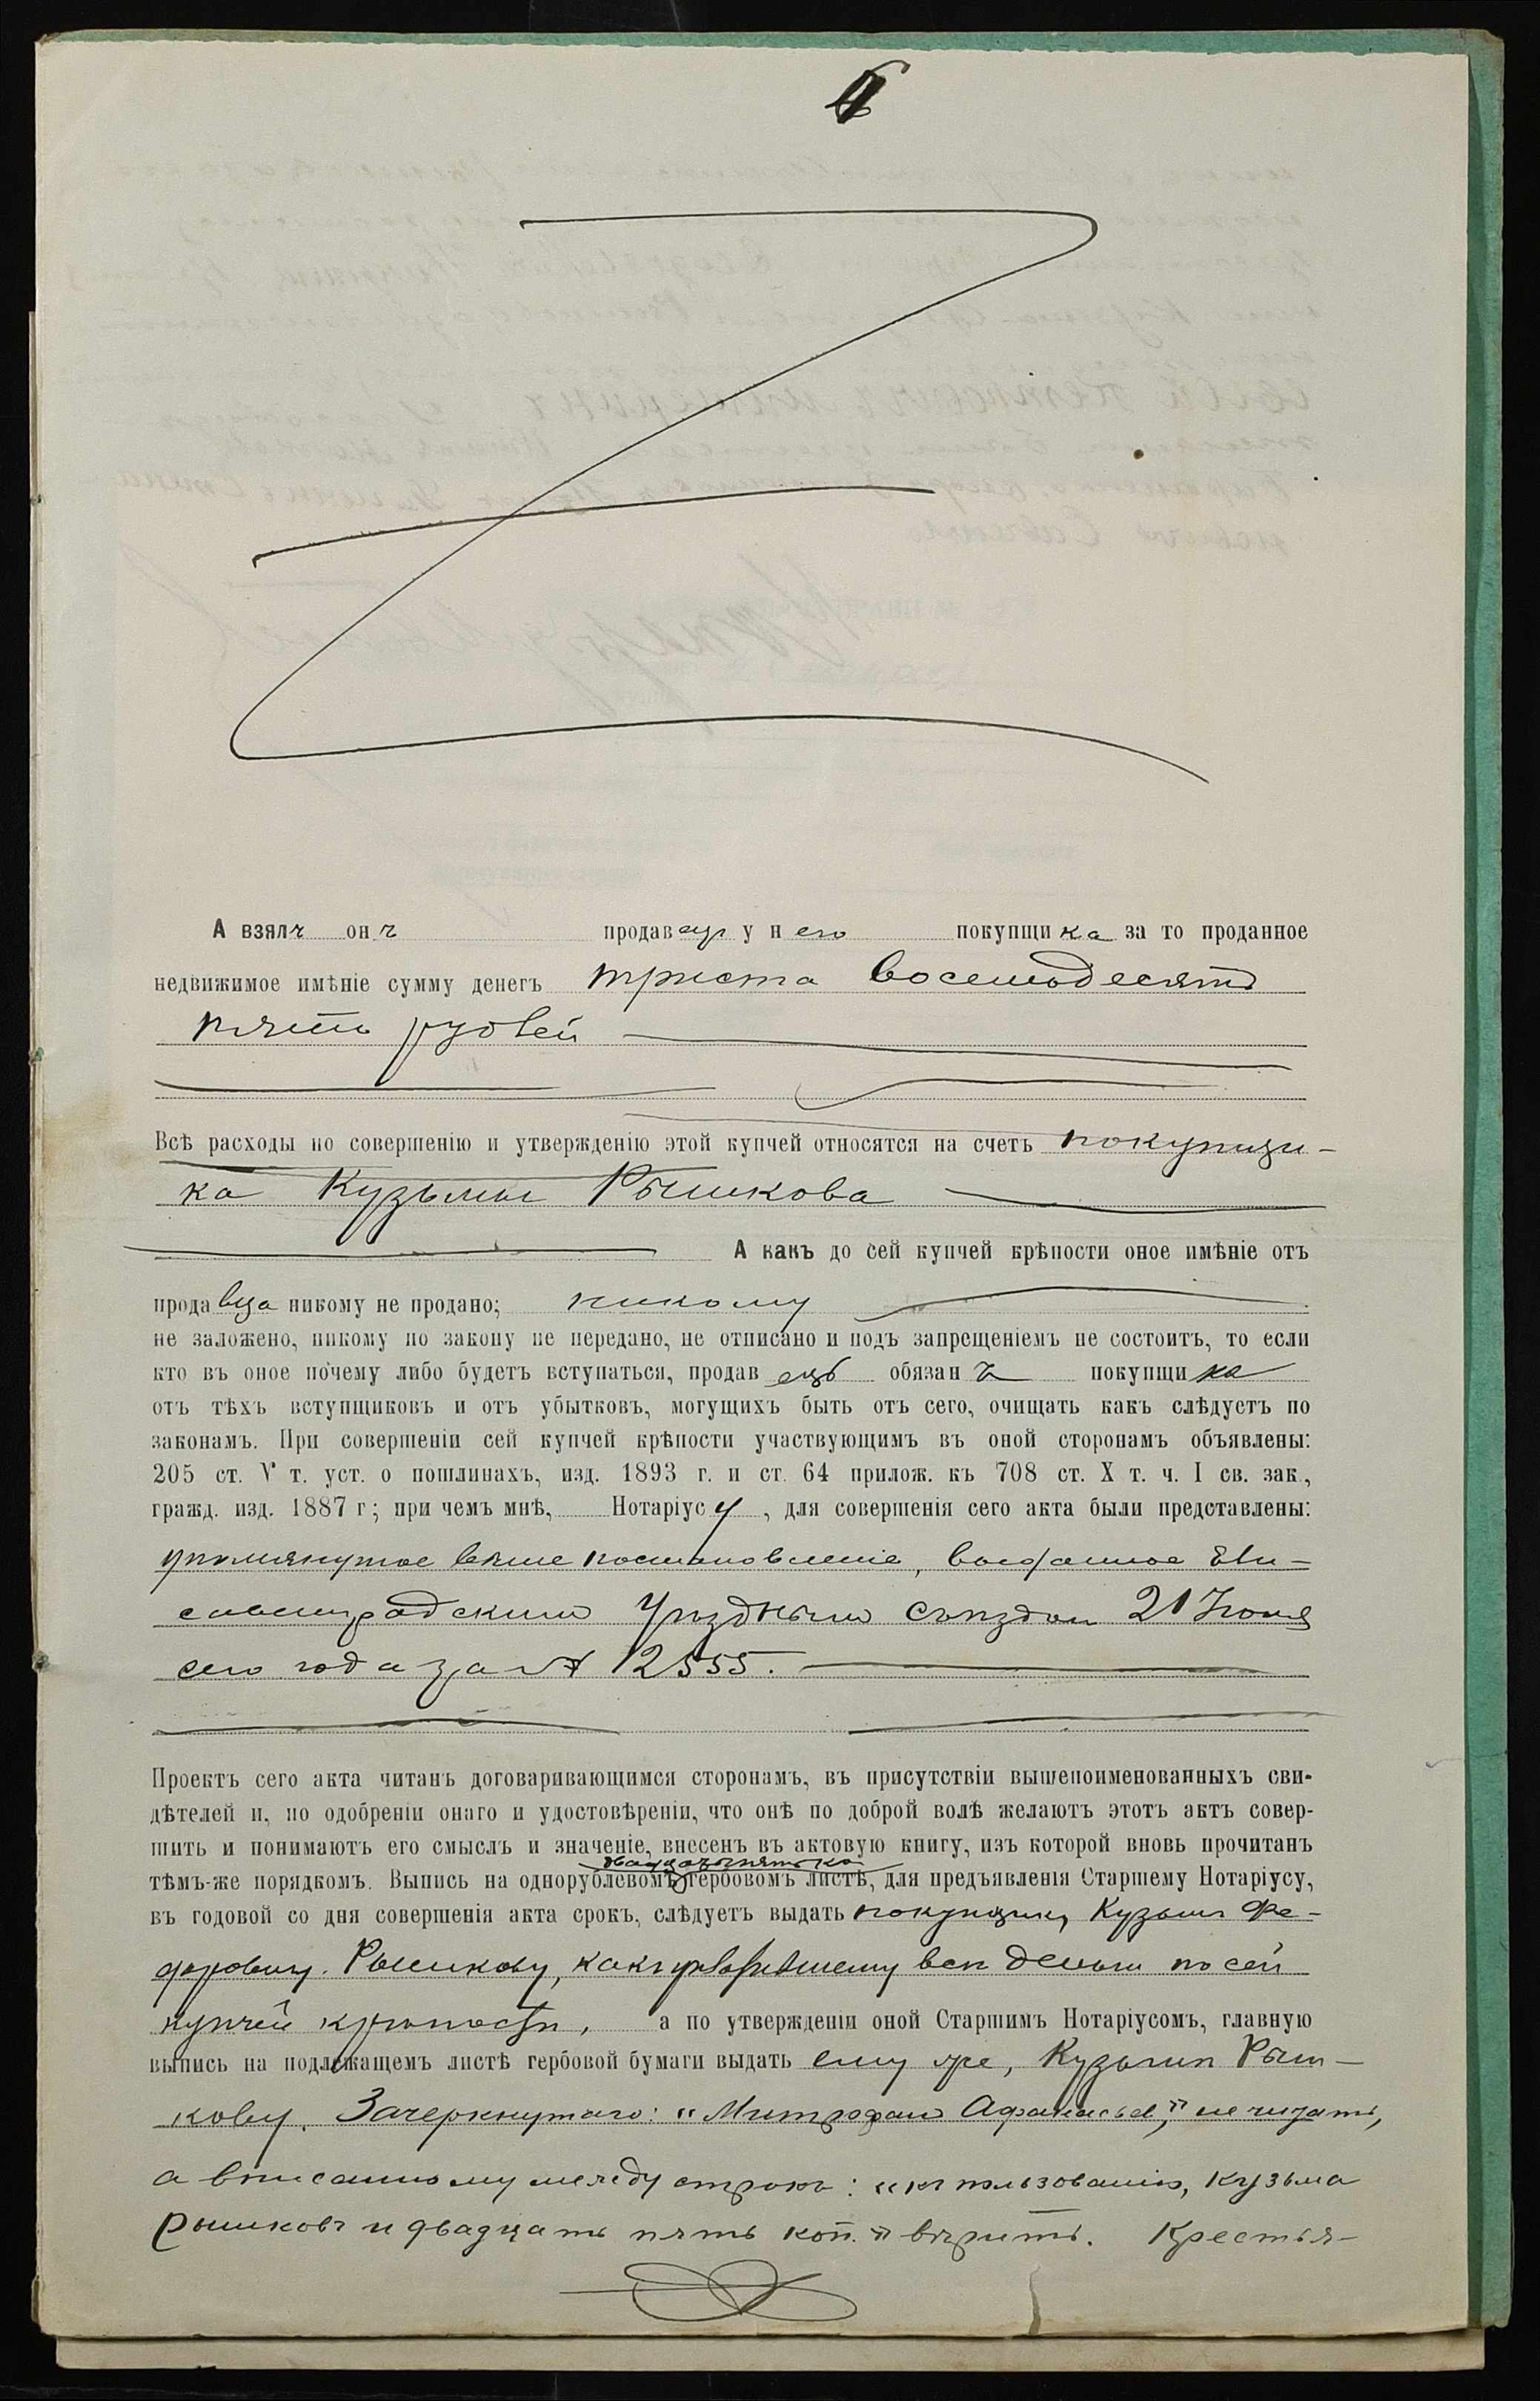 А взялъ онъ продавецъ у него покупщика за то проданное
недвижимое имѣніе сумму денегъ триста восемьдесятъ
пять рублей
Всѣ расходы по совершенію и утвержденію этой купчей относятся на счетъ покупщи-
ка Кузьмы Рышкова
А какъ до сей купчей крѣпости оное имѣніе отъ
продавца никому не продано; никому
не заложено, никому по закону не передано, не отписано и подъ запрещеніемъ не состоитъ, то если
кто въ оное почему либо будетъ вступаться, продавецъ обязанъ покупщика
отъ тѣхъ вступщиковъ и отъ убытковъ, могущихъ быть отъ сего, очищать какъ слѣдуетъ по
законамъ. При совершеніи сей купчей крѣпости участвующимъ въ оной сторонамъ объявлены:
205 ст. V т. уст. о пошлинахъ, изд. 1893 г. и ст. 64 прилож. къ 708 ст. X т. ч. I св. зак.,
гражд. изд. 1887 г; при чемъ мнѣ, Нотаріусу, для совершенія сего акта были представлены:
упомянутое выше постановленіе, выданное Ели-
саветградскимъ Уѣзднымъ Съѣздомъ 21 Іюня
сего года за № 12555.
Проектъ сего акта читанъ договаривающимся сторонамъ, въ присутствіи вышепоименованныхъ сви-
дѣтелей и, по одобреніи онаго и удостовѣреніи, что онѣ по доброй волѣ желаютъ этотъ актъ совер-
шить и понимаютъ его смыслъ и значеніе, внесенъ въ актовую книгу, изъ которой вновь прочитанъ
двадцать пять ко
тѣмъ-же порядкомъ. Выпись на однорублевомъ гербовомъ листѣ, для предъявленія Старшему Нотаріусу,
въ годовой со дня совершенія акта срокъ, слѣдуетъ выдать покупщику Кузьмѣ Фе-
доровичу Рышкову, какъ уплатившему всѣ деньги по сей
купчей крѣпости, а по утвержденіи оной Старшимъ Нотаріусомъ, главную
выпись на подлежащемъ листѣ гербовой бумаги выдать ему же, Кузьмѣ Рыш-
кову. Зачеркнутаго: "Митрофанъ Афанасьев," не читать,
а вписанному между строкъ: "къ пользованію, Кузьма
Рышковъ и двадцать пять коп." вѣрить. Крестья-